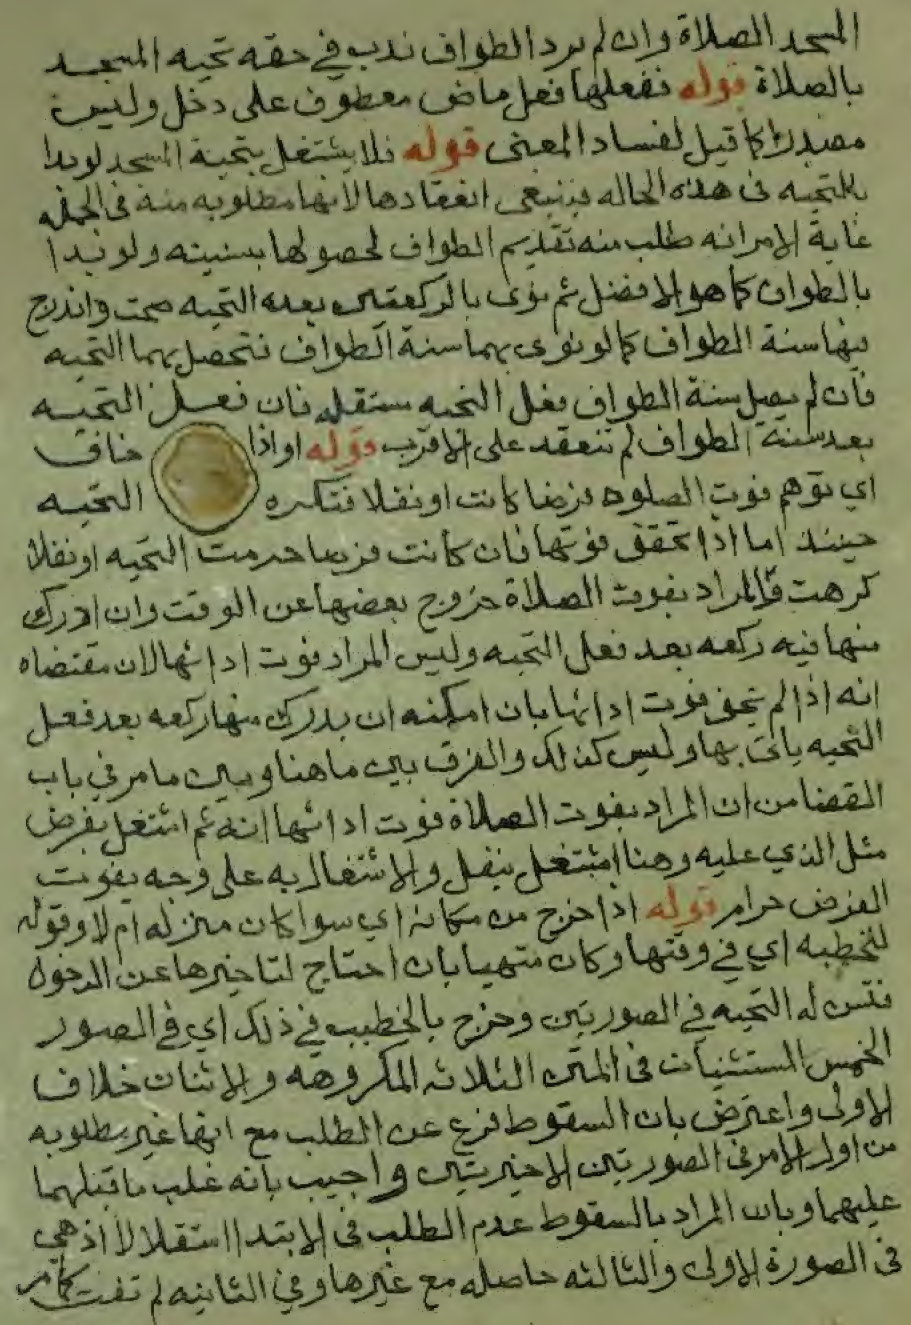 المسجد الصلاة وان لم يرد الطواف ندب في حقه تحية المسجد
بالصلاة قوله ففعلها فعل ماض معطوف على دخل وليس
مصدرا كما قيل لفساد المعنى قوله فلا يشتغل بتحية المسجد لو بدا
بالتحيه في هذه الحاله فينبغي انعقادها لانها مطلوبه منه في الجمله
غاية الامر انه طلب منه تقديم الطواف لحصولها بسنيته ولو بدا
بالطواف كما هو الافضل ثم نوى بالركعتين بعده التحيه صحت واندرج
فيها سنة الطواف كما لو نوى بهما سنة الطواف فتحصل بهما التحيه
فان لم يصل سنة الطواف فعل التحيه مستقله فان فعل التحيه
بعد سنة الطواف لم تنعقد على الاقرب قوله او اذا خاف
اي توهم فوت الصلوه فرضا كانت او نفلا فتكره التحيه
حينئذ اما اذا تحقق فوتها فان كانت فرضا حرمت التحيه او نفلا
كرهت والمراد بفوت الصلاة خروج بعضها عن الوقت وان ادرك
منها فيه ركعه بعد فعل التحيه وليس المراد فوت ادائها لان مقتضاه
انه اذا لم يخف فوت ادائها بان امكنه ان يدرك منها ركعه بعد فعل
التحيه ياتي بها وليس كذلك والفرق بين ما هنا وبين ما مر في باب
القضا من ان المراد بفوت الصلاة فوت ادائها انه ثم اشتغل بفرض
مثل الذي عليه وهنا اشتغل بنفل والاشتغال به على وجه يفوت
الفرض حرام قوله اذا خرج من مكانه اي سوا كان منزله ام لا وقوله
للخطبه اي في وقتها وكان متهيا بان احتاج لتاخيرها عن الدخول
فتسن له التحيه في الصورتين وخرج بالخطيب في ذلك اي في الصور
الخمس المستثنيات في المتن الثلاثه المكروهه والاثنان خلاف
الاولى واعترض بان السقوط فرع عن الطلب مع انها غير مطلوبه
من اول الامر في الصورتين الاخيرتين واجيب بانه غلب ما قبلهما
عليهما وبان المراد بالسقوط عدم الطلب في الابتدا استقلالا اذ هي
في الصورة الاولى والثالثه حاصله مع غيرها وفي الثانيه لم تفت كما مر